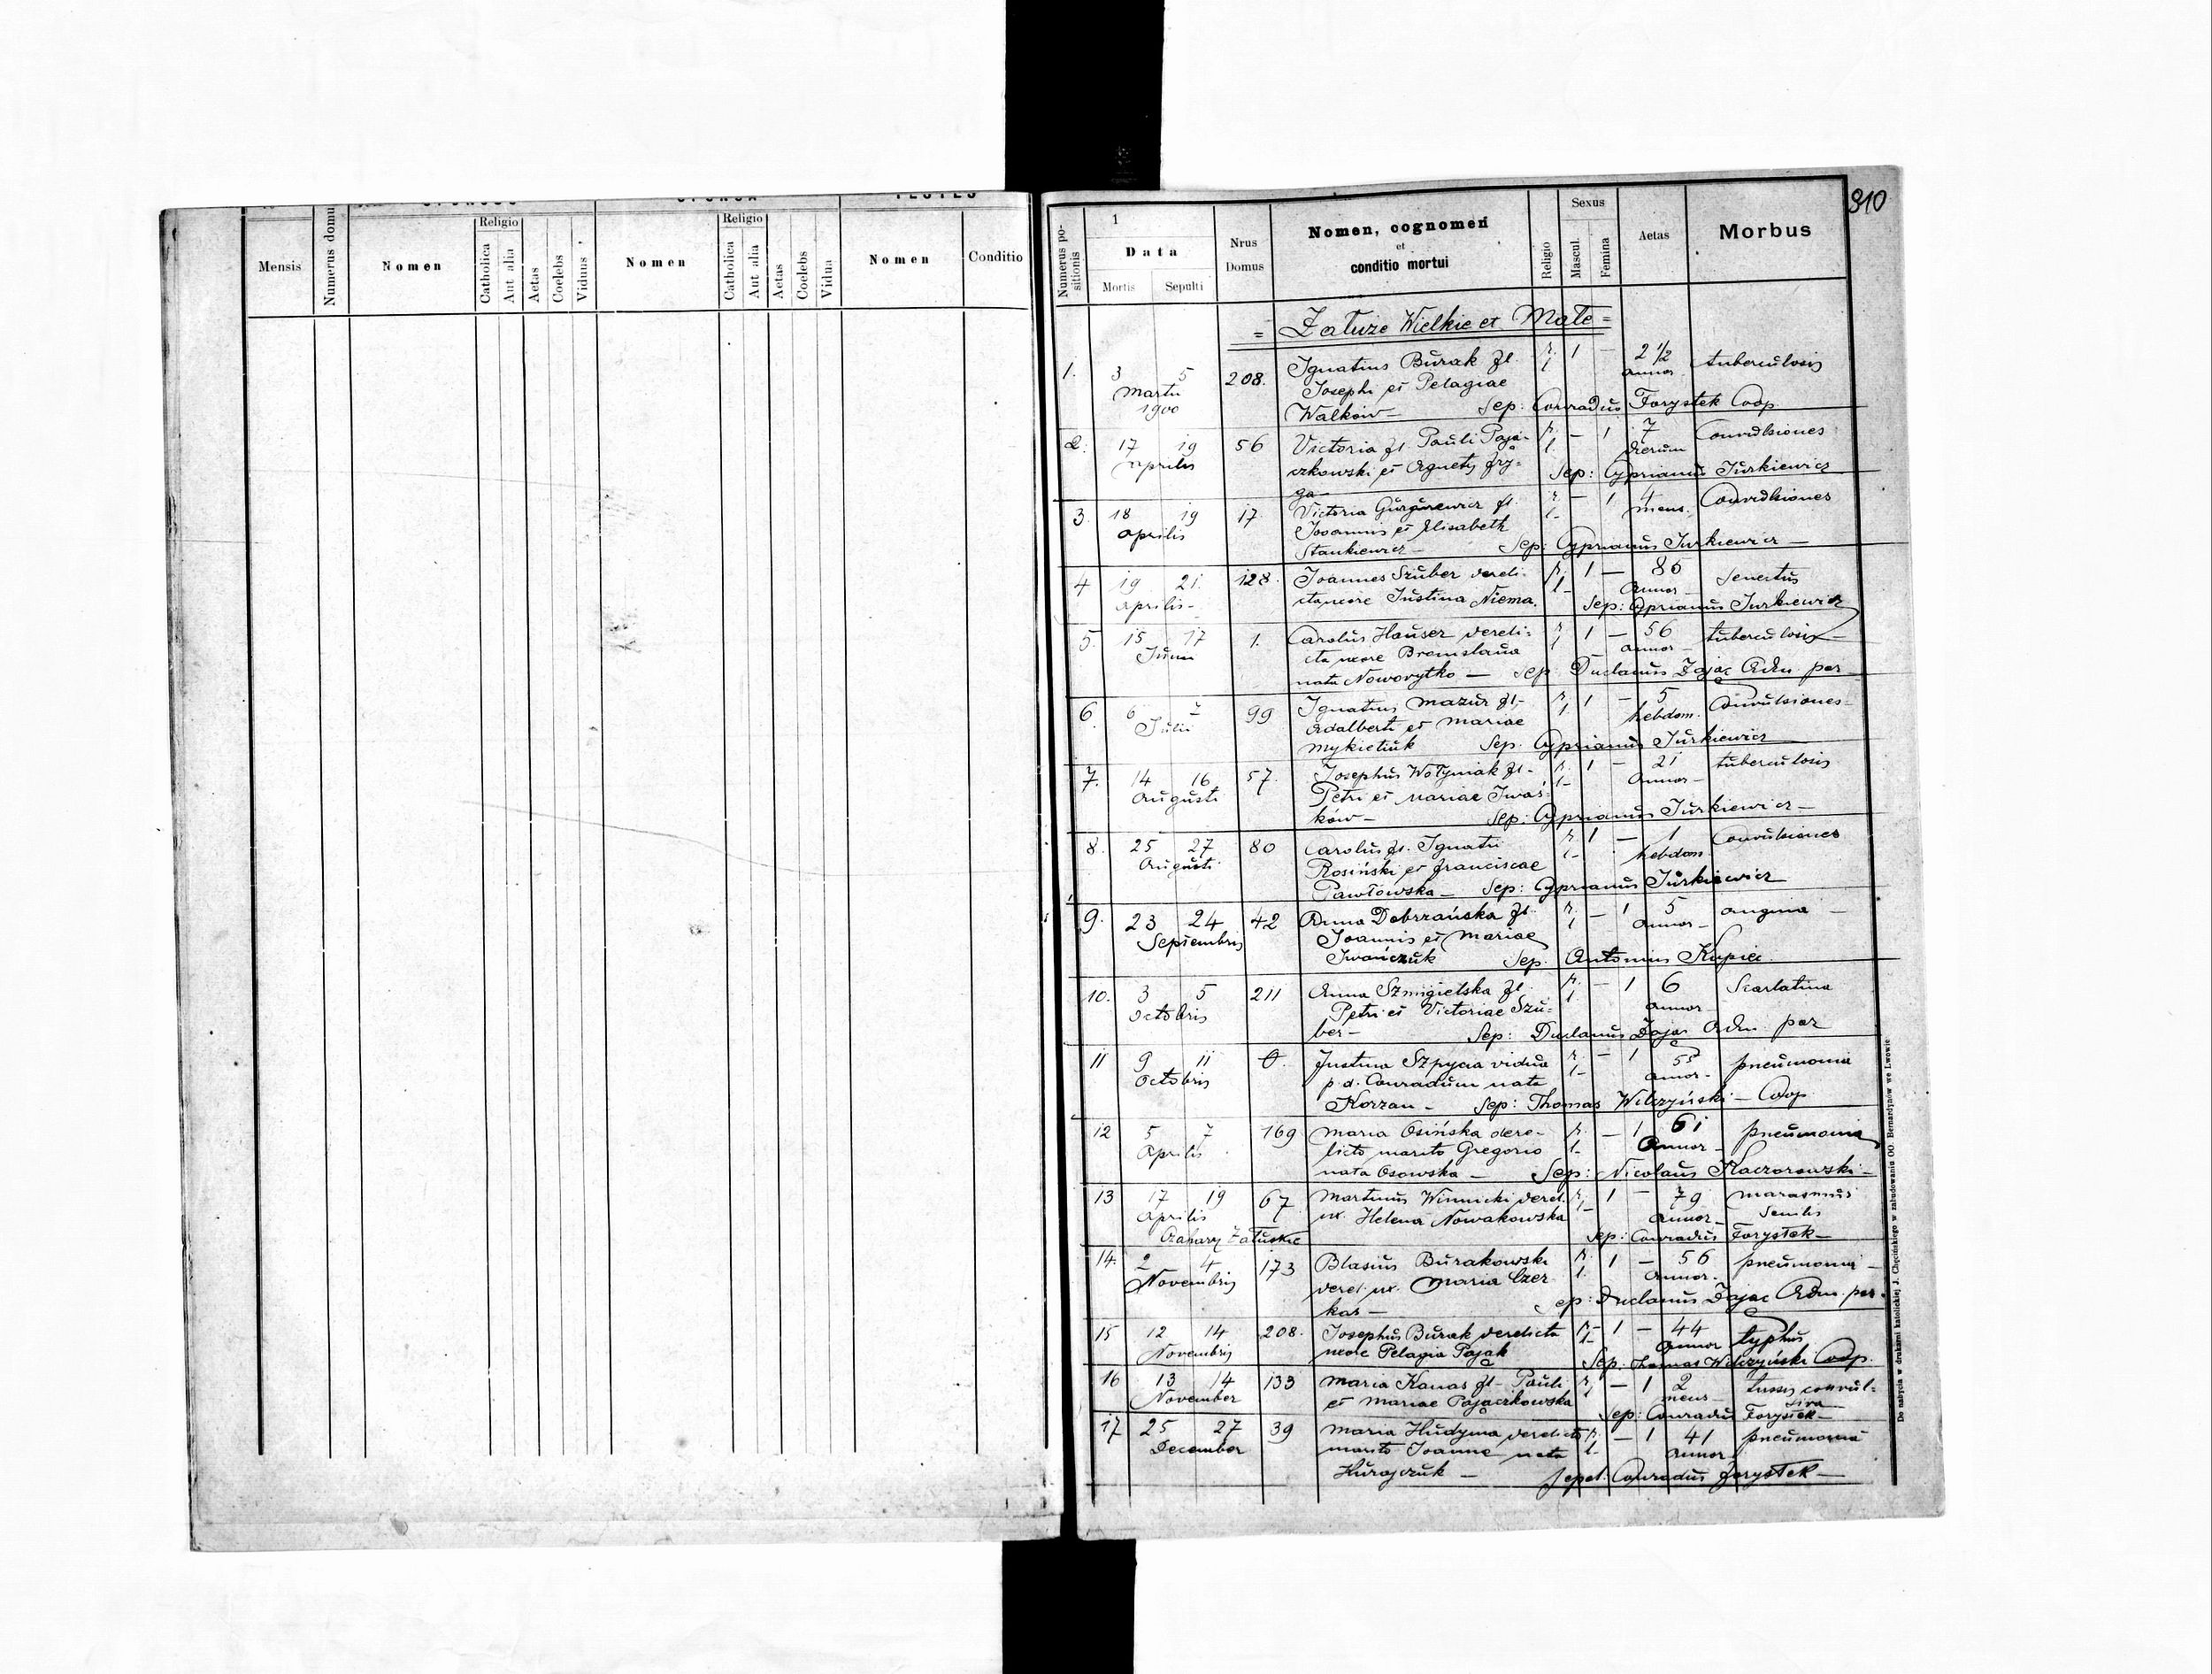 SPONSUS SPONSA TESTES
Mensis
Numerus domu
Nomen
Religio
Catholica
Aut alia
Aetas
Coelebs
Viduus
Nomen
Religio
Catholica
Aut alia
Aetas
Coelebs
Vidua
Nomen
Conditio
810
Numerus po-
sitionis
1
Data
Mortis Sepulti
Nrus
Domus
Nomen, cognomen
et
conditio mortui
Religio
Sexus
Mascul.
Femina
Aetas
Morbus
= Załuże Wielkie et Małe =
1. 3 5 208. Ignatius Burak fl. r. 1 — 2 1/2 tuberculosis
Martii Josephi et Pelagiae l. annor
1900 Walków — Sep: Conradus Forystek Coop
2. 17 19 56 Victoria fl. Pauli Pają- r. — 1 7 Convulsiones
Aprilis czkowski et Agnetis Fry- l. dierum
ga — Sep: Cyprianus Jurkiewicz
3. 18 19 17. Victoria Gurgurewicz fl. r. — 1 4 Convulsiones
Aprilis Joannis et Elisabeth l. mens.
Stankiewicz — Sep: Cyprianus Jurkiewicz —
4 19 21. 128. Joannes Szuber dereli- r. 1 — 86 Senectus
Aprilis — cta uxore Justina Niema. l. Annor
Sep: Cyprianus Jurkiewicz
5. 15 17 1. Carolus Hauser dereli- r. 1 — 56 tuberculosis —
Junii cta uxore Bronislava l. annor —
nata Noworytko — Sep: Duclanus Zając Adm par —
6. 6 7 99 Ignatius Mazur fl. r. 1 — 5 Convulsiones
Julii Adalberti et Mariae l. hebdom.
Mykietiuk Sep. Cyprianus Jurkiewicz
7. 14 16 57. Josephus Wołyniak fl. r. 1 — 21 tuberculosis
Augusti Petri et Mariae Iwaś- l. Annor —
ków — Sep: Cyprianus Jurkiewicz —
8. 25 27 80 Carolus fl. Ignatii r. 1 — 1 Convulsiones
Augusti Rosiński et Franciscae l. hebdom.
Pawłowska — Sep: Cyprianus Jurkiewicz
9. 23 24 42 Anna Dobrzańska fl. r. — 1 5 angina —
Septembris Joannis et Mariae l. Annor —
Iwańczuk Sep. Antonius Kupiec.
10. 3 5 211 Anna Szmigielska fl. r. — 1 6 Scarlatina
Octobris Petri et Victoriae Szu- l. annor
ber — Sep: Duclanus Zając Adm par
11 9 11 0. Justina Szpycia vidua r. — 1 55 pneumonia
Octobris p. d. Conradum nata l. annor —
Korzan — Sep: Thomas Wilczyński — Coop
12 5 7 169 Maria Osińska dere- r. — 1 61 pneumonia
Aprilis licto marito Gregorio l. Annor
nata Osowska — Sep: Nicolaus Kaczorowski —
13 17 19 67 Martinus Winnicki derel. r. 1 — 79 marasmus
Aprilis ux. Helena Nowakowska l. Annor — Senilis
Czahary Załuskie Sep: Conradus Forystek —
14. 2 4 173 Blasius Burakowski r. 1 — 56 pneumonia —
Novembris derel. ux. Maria Czer l. Annor.
kas — Sep: Duclanus Zając Adm. par.
15 12 14 208. Josephus Burak derelicta r. 1 — 44 typhus
Novembris uxore Pelagia Pająk l. Annor
Sep: Thomas Wilczyński Coop.
16 13 14 133 Maria Kanas fl. Pauli r. — 1 2 tussis convul-
November et Mariae Pajączkowska l. mens — siva
Sep: Conradus Forystek —
17 25 27 39 Maria Hudyma derelicto r. — 1 41 pneumonia
December marito Joanne nata l. Annor
Hurajczuk — Sepel: Conradus Forystek —
Do nabycia w drukarni katolickiej J. Chęcińskiego w zabudowaniu OO. Bernardynów we Lwowie